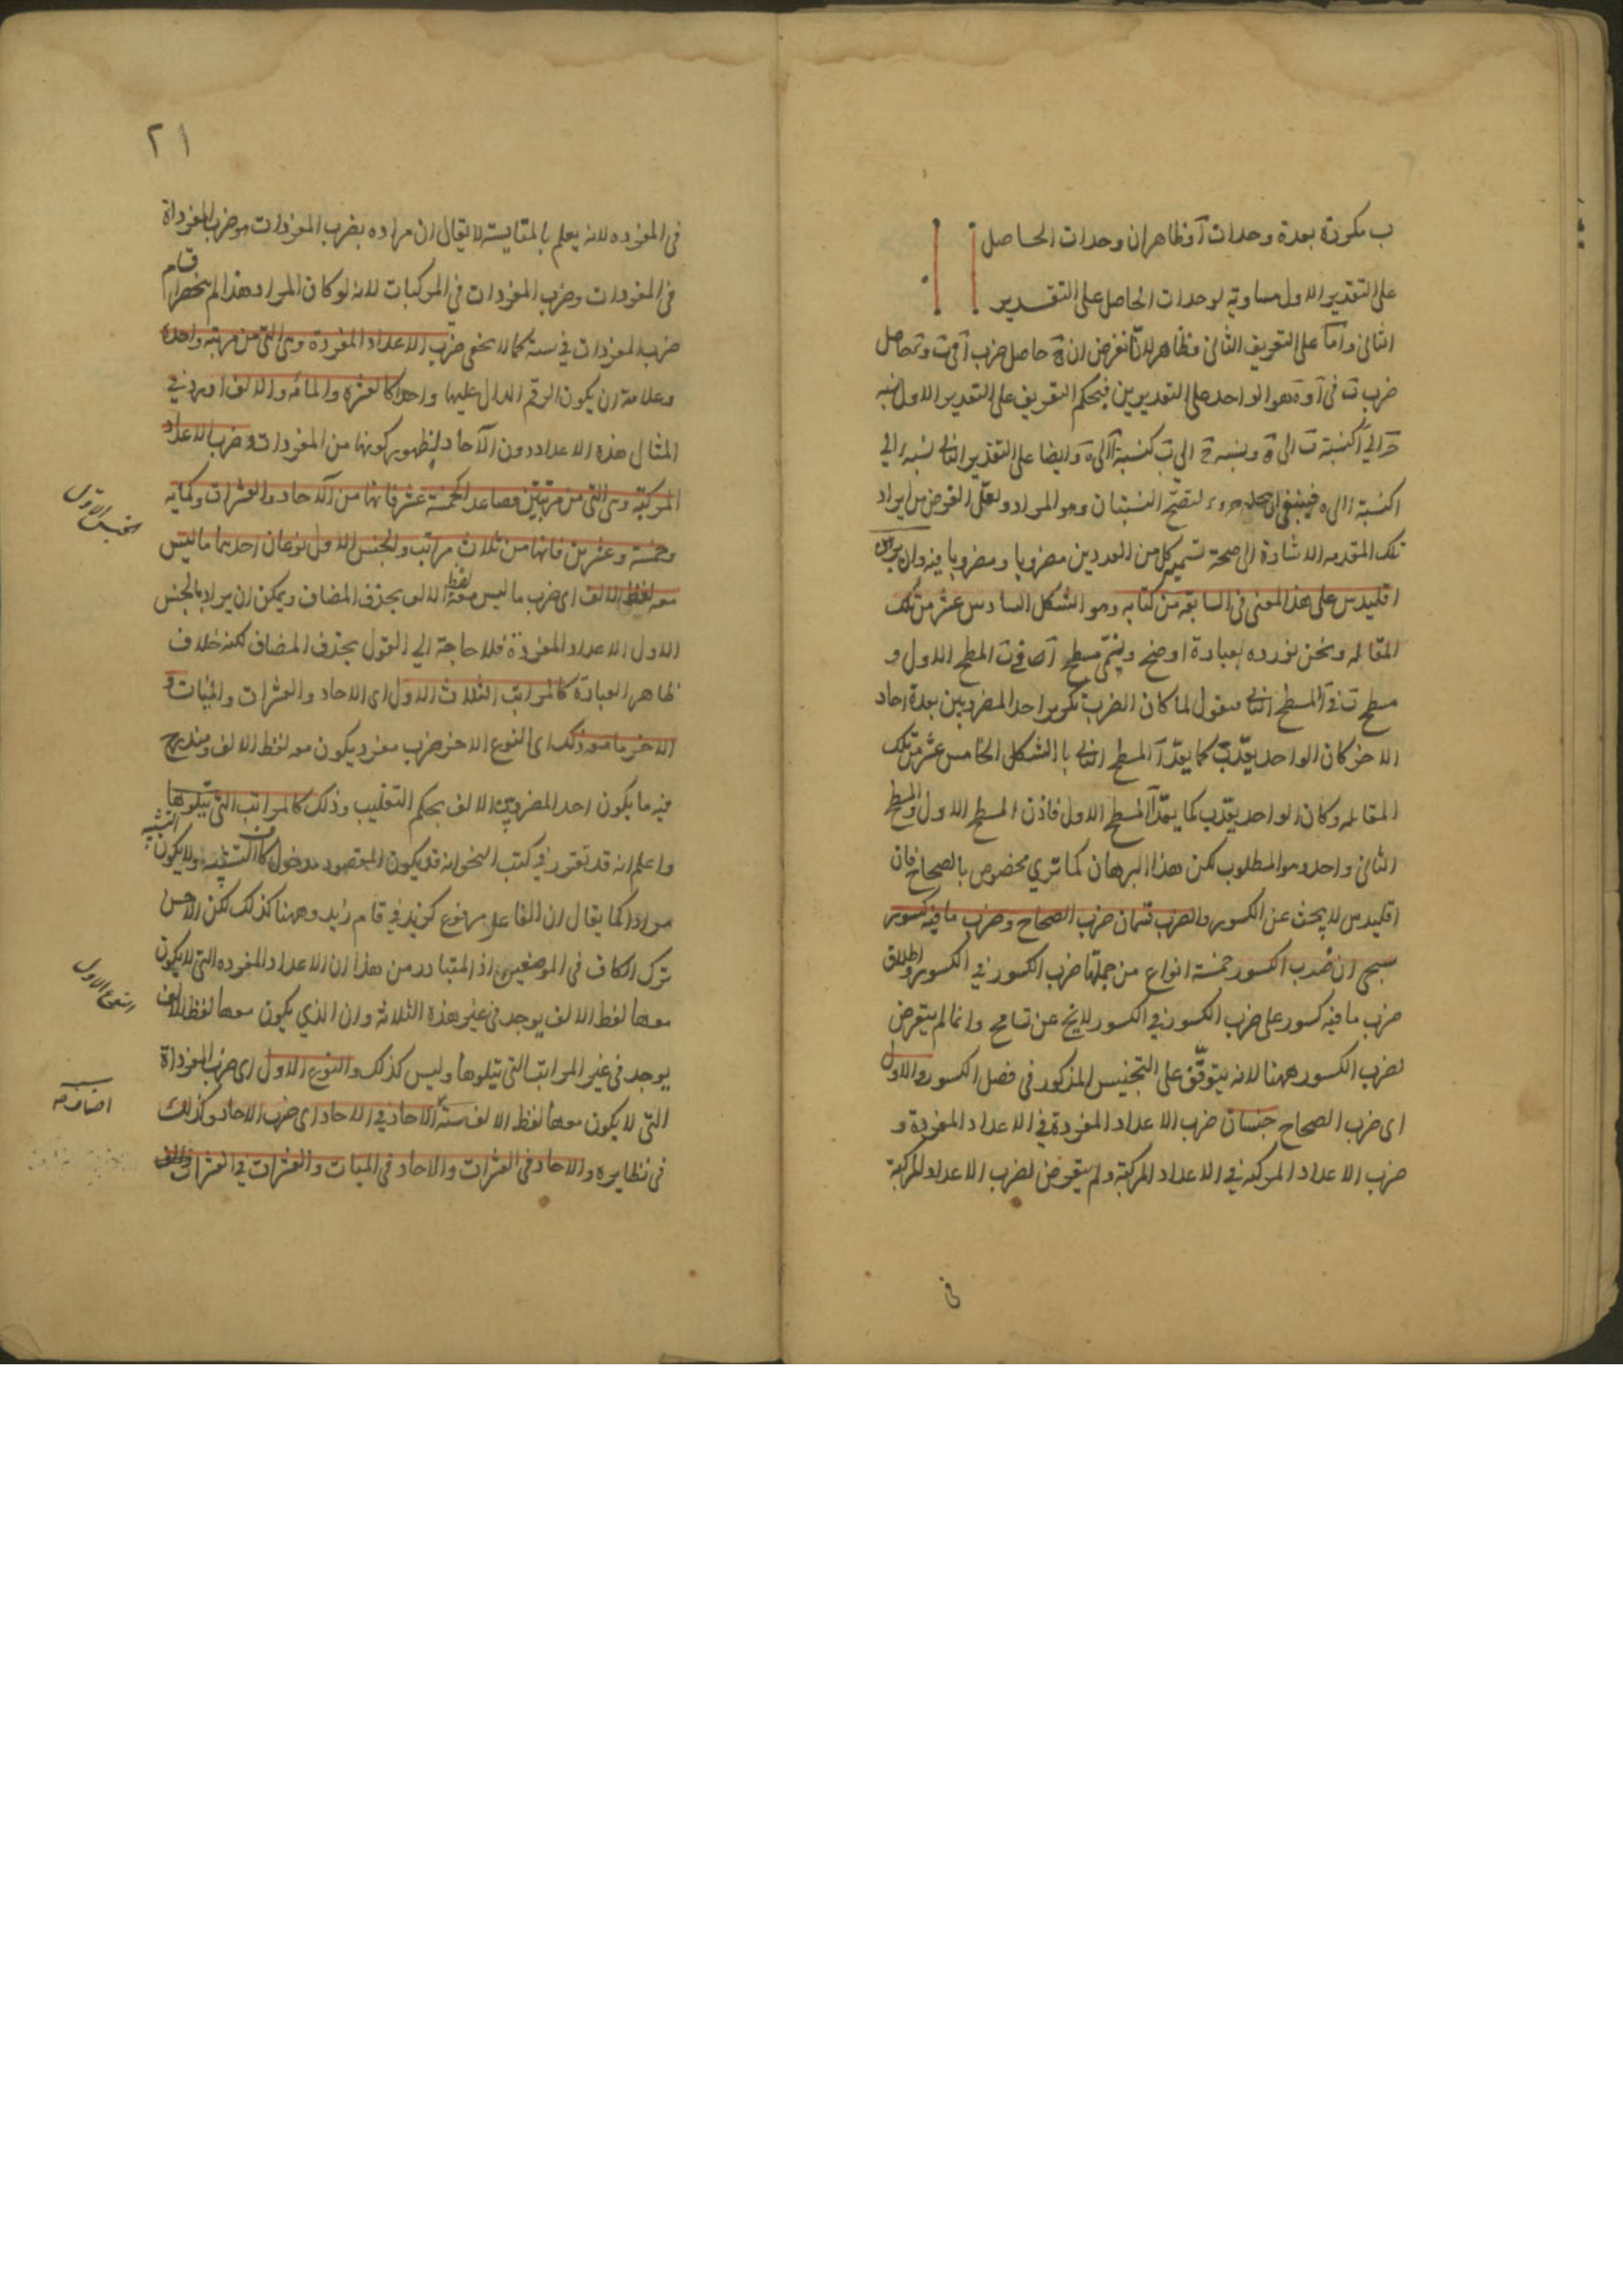 ب مكررة بعدة وحدات آ وظاهر ان وحدات الحاصل
على التقدير الاول مساوية لوحدات الحاصل على التقـــدير
الثانى واما على التعريف الثانى فظاهر لانا نفرض ان ج حاصل ضرب آ فى ب و حاصل
ضرب ب فى آ و ه هو الواحد على التقديرين فبحكم التعريف على التقدير الاول نسبه
ج الى آ كنسبة ب الى ه ونسبه ج الى ب كنسبة آ الى ه وايضا على التقدير الثانى نسبه الى
كنسبة الى ه فينبغى ان لتصح النسبتان وهو المراد ولعل الغرض من ايراد
تلك المقدمه الاشارة الى صحة تسمية كل من العددين مضروبا ومضروبا فيه وان برهن
اقليدس على هذا المعنى فى السابعه من كتابه وهو الشكل السادس عشر من تلك
المقاله ونحن نورده بعبارة اوضح ونسمى مسطح آ فى ب المسطح الاول و
مسطح ب فى آ المسطح الثانى فنقول لما كان الضرب تكرير احد المضروبين بعدة احاد
الاخر كان الواحد يعد ب كما يعد آ المسطح الثانى بالشكل الخامس عشر من تلك
المقاله وكان الواحد يعد ب كما يعد آ المسطح الاول فاذن المسطح الاول والمسطح
الثانى واحد وهو المطلوب لكن هذا البرهان كما ترى مخصوص بالصحاح فان
اقليدس لا يبحث عن الكسور والضرب قسمان ضرب الصحاح وضرب ما فيه كسور
سيجى ان ضرب الكسور خمسة انواع من جملتها ضرب الكسور فى الكسور واطلاق
ضرب ما فيه كسور على ضرب الكسور فى الكسور لا يخ عن تسامح وانما لم يتعرض
لضرب الكسور ههنا لانه يتوقف على التجنيس المذكور فى فصل الكسور والاول
اى ضرب الصحاح جنسان ضرب الاعداد المفردة فى الاعداد المفردة و
ضرب الاعداد المركبه فى الاعداد المركبة ولم يتعرض لضرب الاعداد المركبة
فى
٢١
فى المفرده لانه يعلم بالمقايسة لا يقال ان مراده بضرب المفردات هو ضرب المفردات
فى المفردات وضرب المفردات فى المركبات لانه لو كان المراد هذا لم ينحصر اقسام
ضرب المفردات فى ستة كما لا يخفى ضرب الاعداد المفردة وهى التى من مرتبه واحده
وعلامته ان يكون الرقم الدال عليها واحدا كالعشره والمائه والالف اورد فى
المثال هذه الاعداد دون الآحاد لظهور كونها من المفردات وضرب الاعداد
المركبة وهى التى من مرتبتين فصاعدا كخمسة عشر فانها من الآحاد والعشرات وكمايه
وخمسة وعشرين فانها من ثلاث مراتب والجنس الاول نوعان احدهما ما ليس
معه لفظ الالف اى ضرب ما ليس معه لفظ الالف بحذف المضاف ويمكن ان يراد بالجنس
الاول الاعداد المفردة فلا حاجة الى القول بحذف المضاف لكنه خلاف
ظاهر العبارة كالمراتب الثلاث الاول اى الاحاد والعشرات والمئات و
الاخر ما معه ذلك اى النوع الاخر ضرب مفرد يكون معه لفظ الالف ويندرج
فيه ما يكون احد المضروبين الالف بحكم التغليب وذلك كالمراتب التى تتلوها
واعلم انه قد تقرر فى كتب النحو انه قد يكون المقصود مدخول كاف التشبيه ولا يكون
مرادا كما يقال ان الفاعل مرفوع كزيد فى قام زيد وههنا كذلك لكن الاحسن
ترك الكاف فى الموضعين اذ المتبادر من هذا ان الاعداد المفرده التى لا يكون
معها لفظ الالف يوجد فى غير هذه الثلاثه وان الذي يكون معها لفظ الالف
يوجد فى غير المراتب التى تتلوها وليس كذلك والنوع الاول اى ضرب المفردات
التى لا يكون معها لفظ الالف ستة الآحاد فى الاحاد اى ضرب الاحاد وكذلك
فى نظايره والاحاد فى العشرات والاحاد فى الميات والعشرات فى العشرات
الجنس الاول
النوع الاول